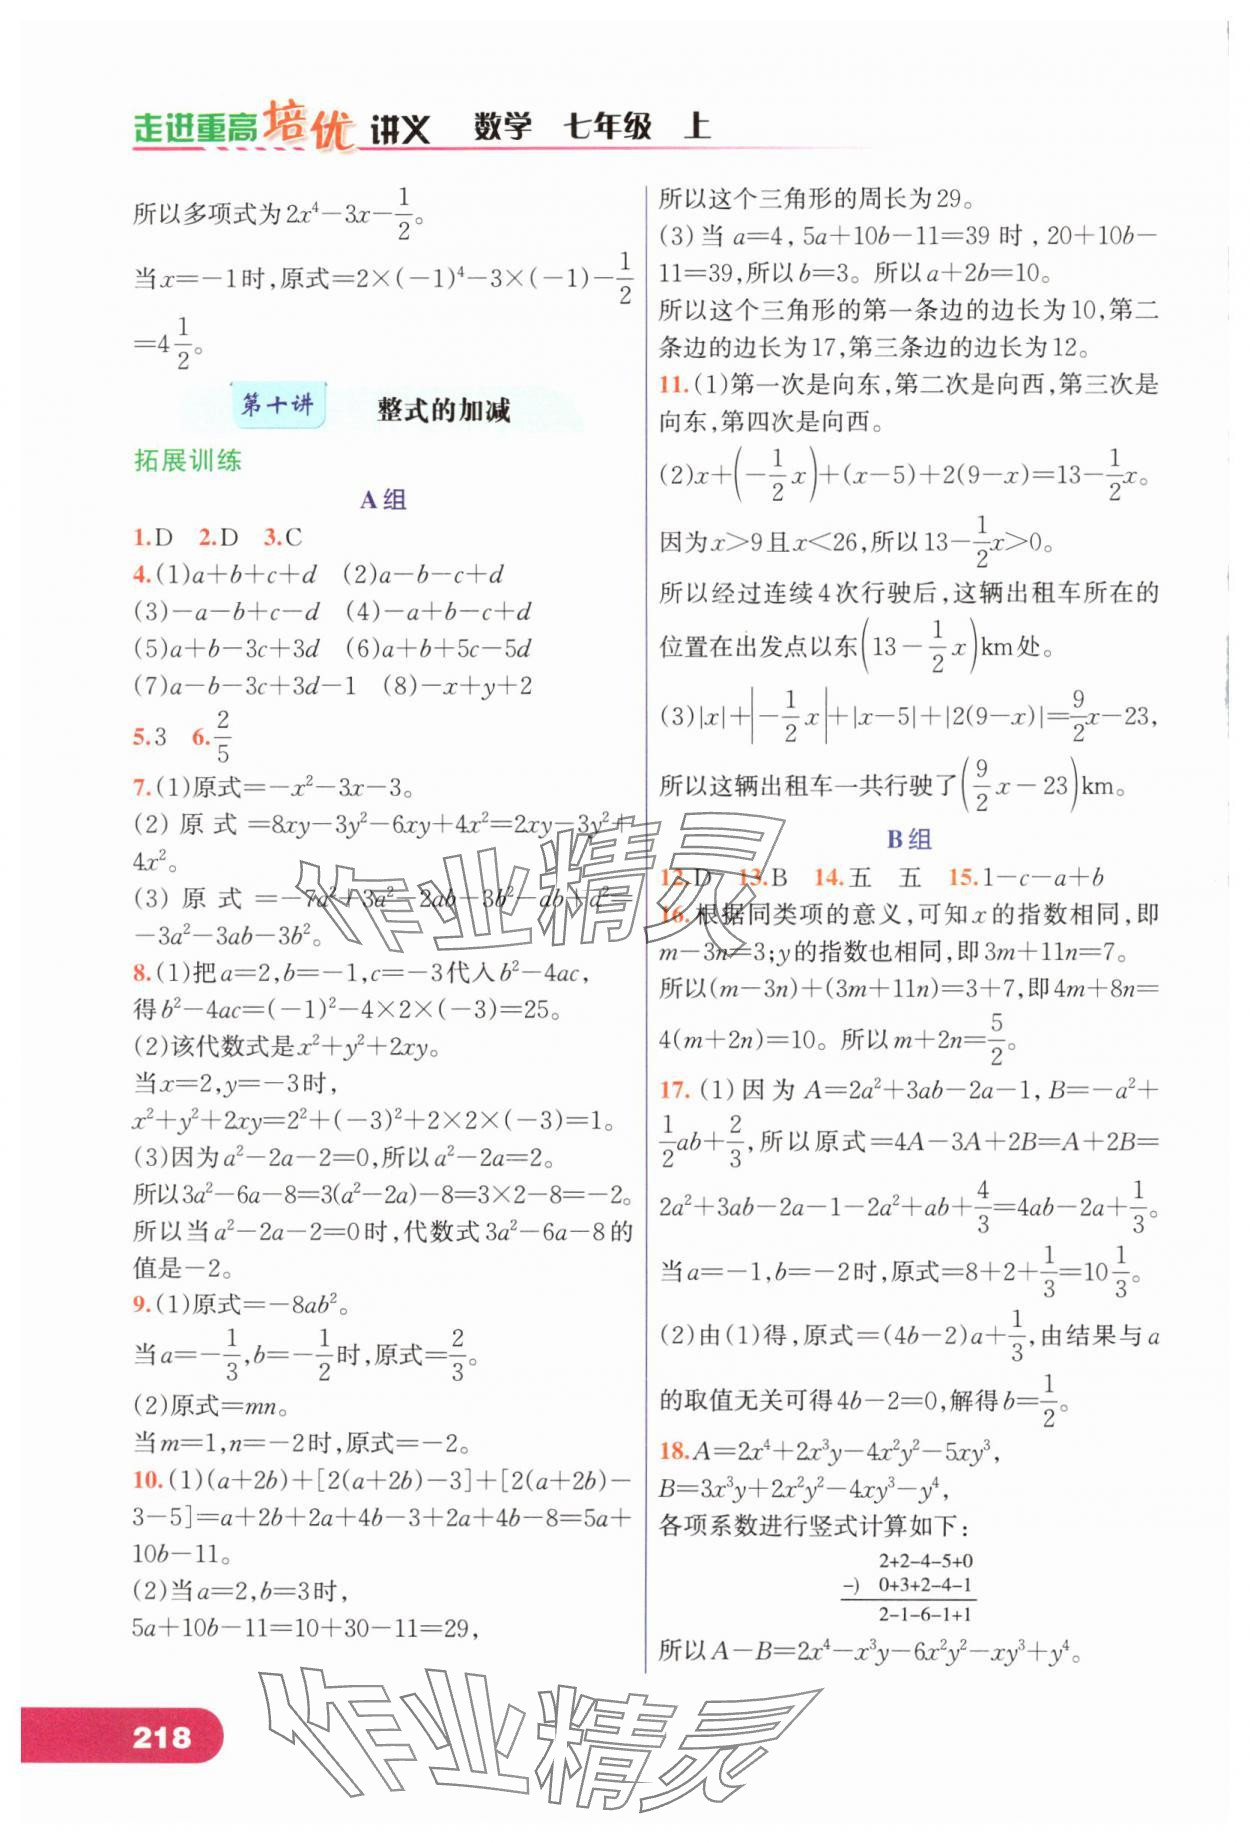 走进重高培优讲义 数学 七年级 上
所以多项式为2x⁴−3x−1/2。
当x=−1时,原式=2×(−1)⁴−3×(−1)−1/2
=4 1/2。
第十讲 整式的加减
拓展训练
A组
1.D 2.D 3.C
4.(1)a+b+c+d (2)a−b−c+d
(3)−a−b+c−d (4)−a+b−c+d
(5)a+b−3c+3d (6)a+b+5c−5d
(7)a−b−3c+3d−1 (8)−x+y+2
5.3 6.2/5
7.(1)原式=−x²−3x−3。
(2)原式=8xy−3y²−6xy+4x²=2xy−3y²+
4x²。
(3)原式=−7a²+3a²−2ab−3b²−ab+a²=
−3a²−3ab−3b²。
8.(1)把a=2,b=−1,c=−3代入b²−4ac,
得b²−4ac=(−1)²−4×2×(−3)=25。
(2)该代数式是x²+y²+2xy。
当x=2,y=−3时,
x²+y²+2xy=2²+(−3)²+2×2×(−3)=1。
(3)因为a²−2a−2=0,所以a²−2a=2。
所以3a²−6a−8=3(a²−2a)−8=3×2−8=−2。
所以当a²−2a−2=0时,代数式3a²−6a−8的
值是−2。
9.(1)原式=−8ab²。
当a=−1/3,b=−1/2时,原式=2/3。
(2)原式=mn。
当m=1,n=−2时,原式=−2。
10.(1)(a+2b)+[2(a+2b)−3]+[2(a+2b)−
3−5]=a+2b+2a+4b−3+2a+4b−8=5a+
10b−11。
(2)当a=2,b=3时,
5a+10b−11=10+30−11=29,
所以这个三角形的周长为29。
(3)当a=4,5a+10b−11=39时,20+10b−
11=39,所以b=3。所以a+2b=10。
所以这个三角形的第一条边的边长为10,第二
条边的边长为17,第三条边的边长为12。
11.(1)第一次是向东,第二次是向西,第三次是
向东,第四次是向西。
(2)x+(−1/2x)+(x−5)+2(9−x)=13−1/2x。
因为x>9且x<26,所以13−1/2x>0。
所以经过连续4次行驶后,这辆出租车所在的
位置在出发点以东(13−1/2x)km处。
(3)|x|+|−1/2x|+|x−5|+|2(9−x)|=9/2x−23,
所以这辆出租车一共行驶了(9/2x−23)km。
B组
12.D 13.B 14.五 五 15.1−c−a+b
16.根据同类项的意义,可知x的指数相同,即
m−3n=3;y的指数也相同,即3m+11n=7。
所以(m−3n)+(3m+11n)=3+7,即4m+8n=
4(m+2n)=10。所以m+2n=5/2。
17.(1)因为A=2a²+3ab−2a−1,B=−a²+
1/2ab+2/3,所以原式=4A−3A+2B=A+2B=
2a²+3ab−2a−1−2a²+ab+4/3=4ab−2a+1/3。
当a=−1,b=−2时,原式=8+2+1/3=10 1/3。
(2)由(1)得,原式=(4b−2)a+1/3,由结果与a
的取值无关可得4b−2=0,解得b=1/2。
18.A=2x⁴+2x³y−4x²y²−5xy³,
B=3x³y+2x²y²−4xy³−y⁴,
各项系数进行竖式计算如下:
2+2−4−5+0
−) 0+3+2−4−1
2−1−6−1+1
所以A−B=2x⁴−x³y−6x²y²−xy³+y⁴。
作业精灵
作业精灵
218